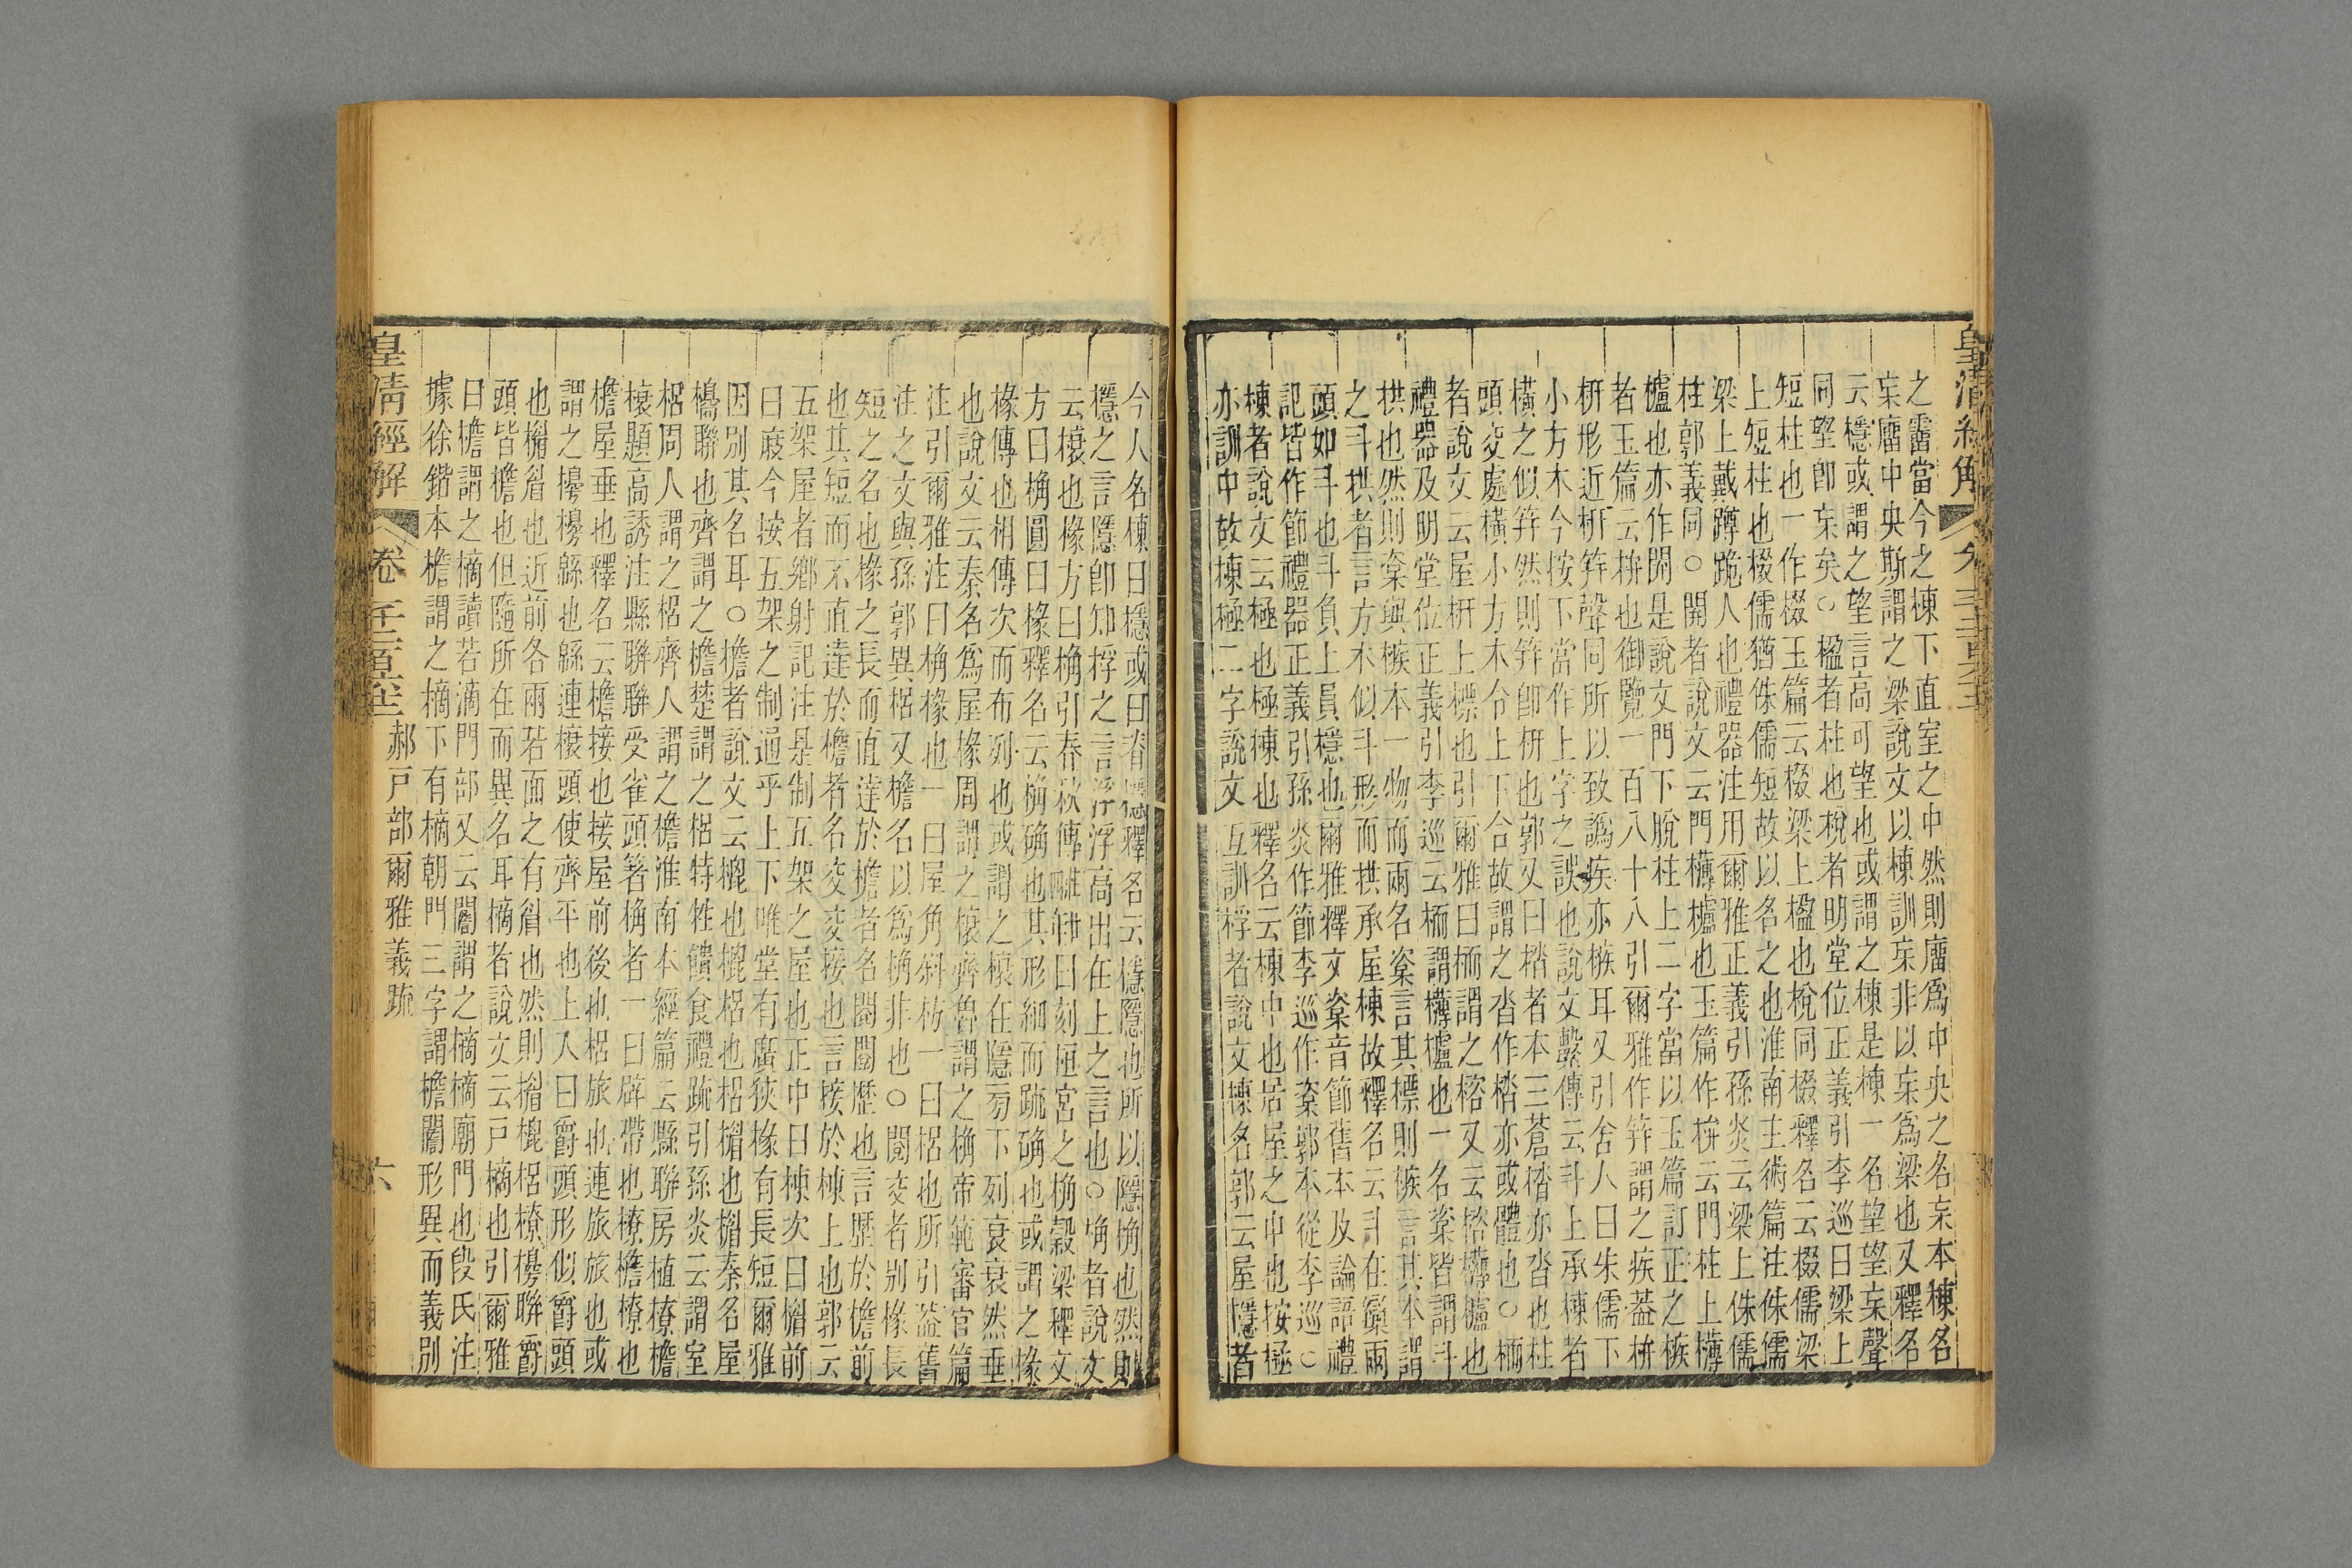 之霤當今之棟下直室之中然則廇爲中央之名杗本棟名
杗廇中央斯謂之梁說文以棟訓杗非以杗爲梁也又釋名
云檼或謂之望言高可望也或謂之棟是棟一名望望杗聲
同望卽杗矣○楹者柱也梲者明堂位正義引李巡曰梁上
短柱也一作棳玉篇云棳梁上楹也梲同棳釋名云棳儒梁
上短柱也棳儒猶侏儒短故以名之也淮南主術篇注侏儒
梁上戴蹲跪人也禮器注用爾雅正義引孫炎云梁上侏儒
柱郭義同○開者說文云門欂櫨也玉篇作枅云門柱上欂
櫨也亦作閞是說文門下脫柱上二字當以玉篇訂正之槉
者玉篇云枅也御覽一百八十八引爾雅作筓謂之疾葢枅
枅形近枅筓聲同所以致譌疾亦槉耳又引舍人曰朱儒下
小方木今按下當作上字之誤也說文繫傳云斗上承棟者
橫之似筓然則筓卽枅也郭又曰楷者本三蒼楷亦沓也柱
頭交處橫小方木令上下合故謂之沓作楷亦或體也○栭
者說文云屋枅上標也引爾雅曰栭謂之楶又云楶欂櫨也
禮器及明堂位正義引李巡云栭謂欂櫨也一名楶皆謂斗
拱也然則楶與槉本一物而兩名楶言其標則槉言其本謂
之斗拱者言方木似斗形而拱承屋棟故釋名云斗在欒兩
頭如斗也斗負上員檼也爾雅釋文楶音節舊本及論語禮
記皆作節禮器正義引孫炎作節李巡作楶郭本從李巡○
棟者說文云極也極棟也釋名云棟中也居屋之中也按極
亦訓中故棟極二字說文互訓桴者說文棟名郭云屋檼者
今人名棟曰檼或曰脊檼釋名云檼隱也所以隱桷也然則
檼之言隱卽知桴之言浮浮高出在上之言也○桷者說文
云榱也椽方曰桷引春秋傳曰刻桓宮之桷穀梁釋文
方曰桷圓曰椽釋名云桷确也其形細而疏确也或謂之椽
椽傳也相傳次而布列也或謂之榱在檼旁下列衰衰然垂
也說文云秦名爲屋椽周謂之榱齊魯謂之桷帝範審官篇
注引爾雅注曰桷椽也一曰屋角斜枋一曰梠也所引葢舊
注之文與孫郭異梠又檐名以爲桷非也○閱交者別椽長
短之名也椽之長而直達於檐者名閱閱歷也言歷於檐前
也其短而不直達於檐者名交交接也言接於棟上也郭云
五架屋者鄉射記注是制五架之屋也正中曰棟次曰楣前
曰庪今按五架之制通乎上下唯堂有廣狹椽有長短爾雅
因別其名耳○檐者說文云㮰也㮰梠也梠楣也楣秦名屋
櫋聯也齊謂之檐楚謂之梠特牲饋食禮疏引孫炎云謂室
梠周人謂之梠齊人謂之檐淮南本經篇云縣聯房植橑檐
榱題高誘注縣聯聯受雀頭箸桷者一曰辟帶也橑檐橑也
檐屋垂也釋名云檐接也接屋前後也梠旅也連旅旅也或
謂之櫋櫋緜也緜連榱頭使齊平也上入曰爵頭形似爵頭
也楣眉也近前各兩若面之有眉也然則楣㮰梠橑櫋聯爵
頭皆檐也但隨所在而異名耳樀者說文云戸樀也引爾雅
曰檐謂之樀讀若滴門部又云閻謂之樀樀廟門也段氏注
據徐鍇本檐謂之樀下有樀朝門三字謂檐閻形異而義別
皇清經解 卷 郝戸部爾雅義疏 六
皇清經解